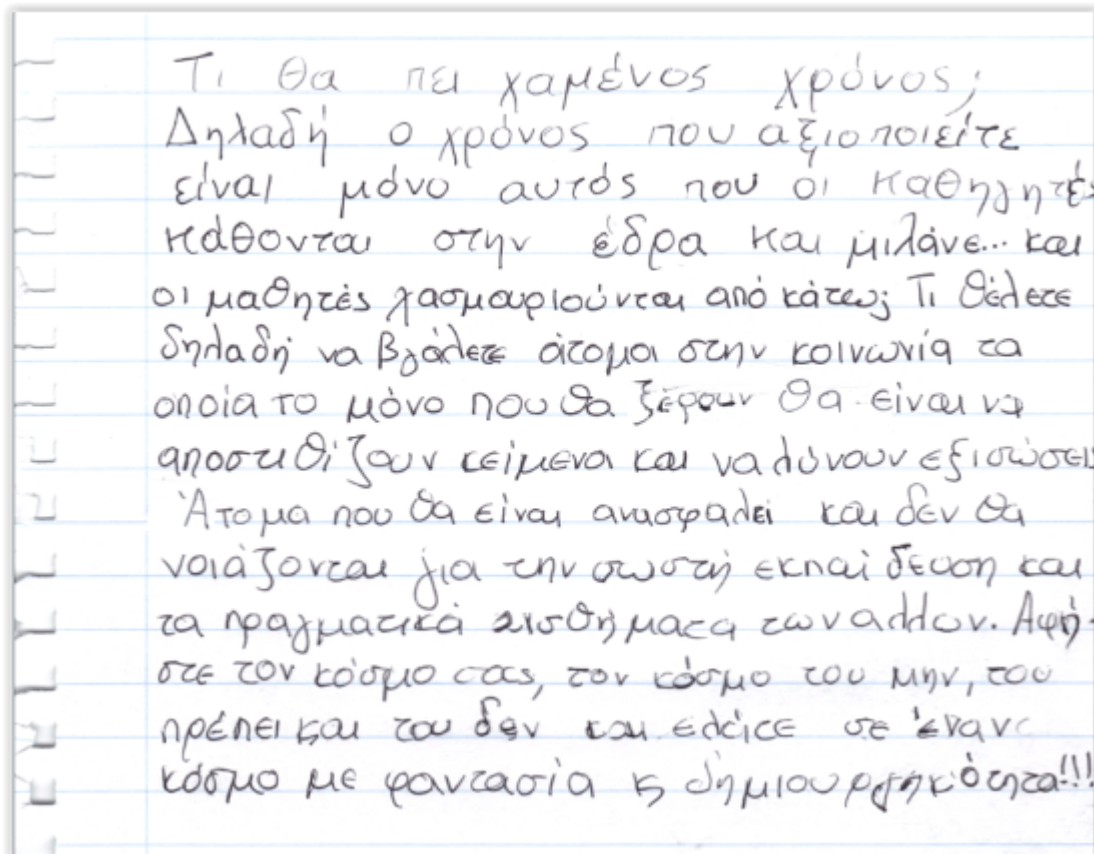 Τι θα πει χαμένος χρόνος;
Δηλαδή ο χρόνος που αξιοποιείτε
είναι μόνο αυτός που οι καθηγητές
κάθονται στην έδρα και μιλάνε... και
οι μαθητές χασμουριούνται από κάτω; Τι θέλετε
δηλαδή να βγάλετε άτομα στην κοινωνία τα
οποία το μόνο που θα ξέρουν θα είναι να
αποστιθίζουν κείμενα και να λύνουν εξισώσεις
Άτομα που θα είναι ανασφαλεί και δεν θα
νοιάζονται για την σωστή εκπαίδευση και
τα πραγματικά αισθήματα των αλλων. Αφή-
στε τον κόσμο σας, τον κόσμο του μην, του
πρέπει και του δεν και ελάτε σε έναν
κόσμο με φαντασία κ δημιουργηκότητα!!!